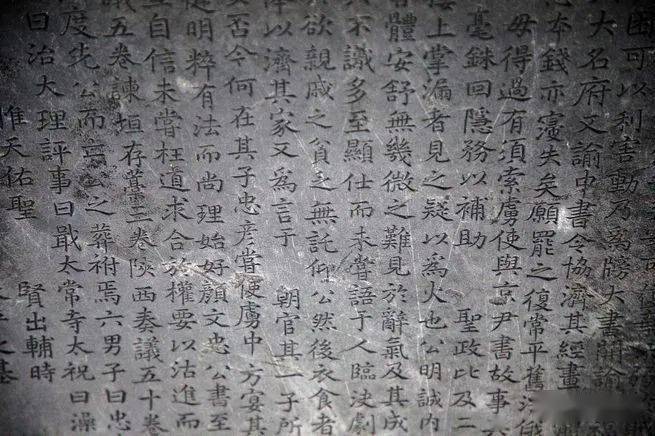 困可以利害動乃爲牓大書開諭
大名府文諭中書令協濟其經畫
本錢亦寖失矣願罷之復常平舊法
毋得過有須索虜使與京尹書故事
毫銖回隱務以補助　聖政比及二
接上掌漏者見之疑以爲火也公明誠内
體安舒無幾微之難見於辭氣及其成
不識多至顯仕而未嘗語于人臨決劇
欲親戚之貧乏無託仰公然後衣食者
以濟其家又爲言于　朝官其一子所
否今何在其子忠彥嘗使虜中　方宴其
明粹有法而尚理始好顏文忠公書至
自信未嘗枉道求合於權要以沽進而
議五卷諫垣存藁三卷陝西奏議五十卷
度先公而亡之葬祔焉六男子曰忠
曰治大理評事曰戢太常寺太祝曰澡
惟天佑聖　賢出輔時